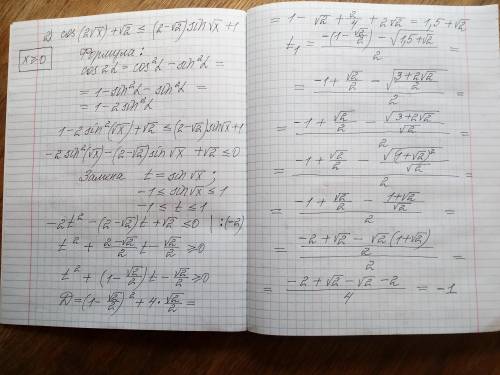 2) cos(2√x) + √2 ≤ (2-√2) sin√x + 1
x ≥ 0
Формула:
cos2α = cos²α - sin²α =
= 1 - sin²α - sin²α =
= 1 - 2sin²α
1 - 2sin²(√x) + √2 ≤ (2-√2) sin√x + 1
-2sin²(√x) - (2-√2) sin√x + √2 ≤ 0
Замена t = sin√x;
-1 ≤ sin√x ≤ 1
-1 ≤ t ≤ 1
-2t² - (2-√2)t + √2 ≤ 0 | :(-2)
t² + (2-√2)/2 t - √2/2 ≥ 0
t² + (1 - √2/2)t - √2/2 ≥ 0
D = (1 - √2/2)² + 4·√2/2 =
= 1 - √2 + 2/4 + 2√2 = 1,5 + √2
t₁ = (-(1 - √2/2) - √(1,5 + √2))/2 =
= (-1 + √2/2 - √((3 + 2√2)/2))/2 =
= (-1 + √2/2 - √(3 + 2√2)/√2)/2 =
= (-1 + √2/2 - √((1 + √2)²)/√2)/2 =
= (-1 + √2/2 - (1 + √2)/√2)/2 =
= ((-2 + √2 - √2(1 + √2))/2)/2 =
= (-2 + √2 - √2 - 2)/4 = -1